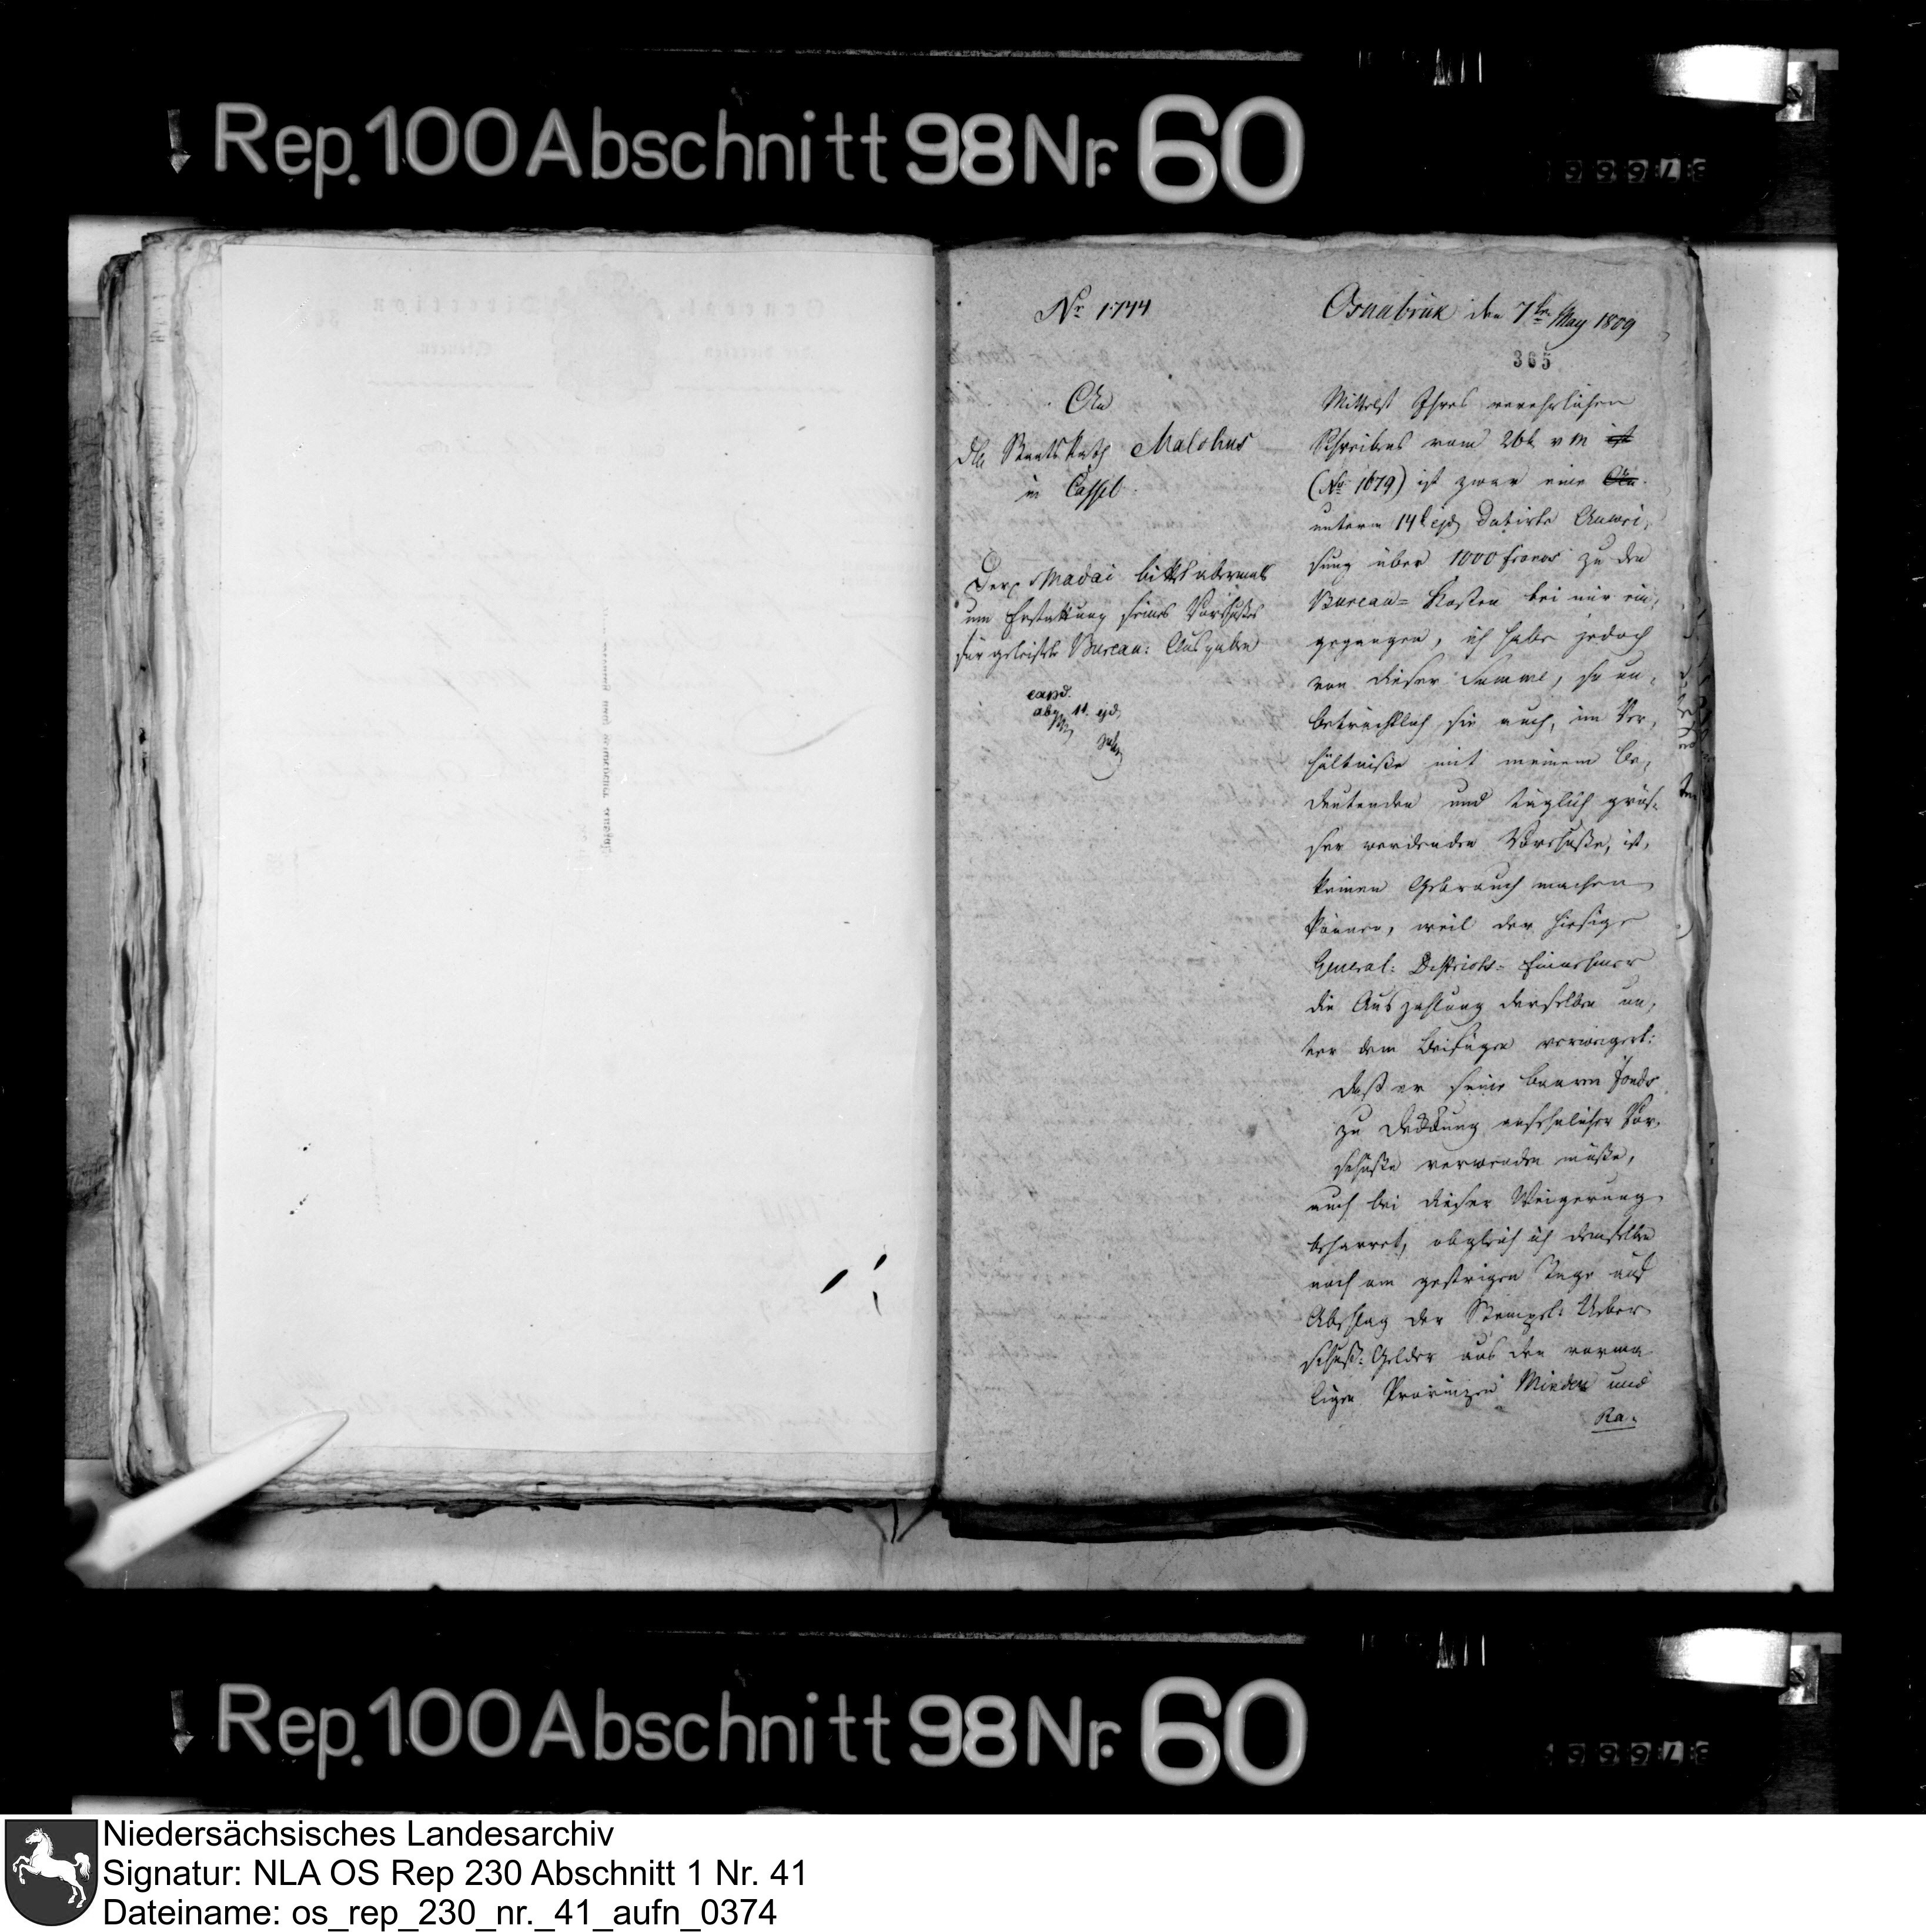 Rep. 100 Abschnitt 98 Nr. 60
No 1744
Osnabrük den 7ten May 1809
365
An
den Staats Rath Malchus
in Cassel.
Der p Madai bittet abermals
um Erstattung seines Vorschußes
für geleistete Bureau: Ausgaben
exp.
abg. 11. ejd.
Mittelst Ihres verehrlichen
Schreibens vom 26t v M ist
(No 1679) ist zwar eine An
unterm 14t ejd datirte Anwei,
sung über 1000 francs zu den
Bureau= Kosten bei mir ein,
gegangen, ich habe jedoch
von dieser Summe, so un,
beträchtlich sie auch, im Ver,
hältniße mit meinem be,
deutenden und täglich grös,
ser werdenden Vorschuße, ist,
keinen Gebrauch machen
können, weil der hiesige
General: Districts= Einnehmer
die Auszahlung derselben un,
ter dem Beifügen verweigert:
daß er seine baaren fonds
zu Deckung ansehnlicher Vor,
schüße verwenden müße,
auch bei dieser Weigerung
beharret, obgleich ich demselben
noch am gestrigen Tage auf
Abschlag der Stempel: Ueber
schuß: Gelder aus den vorma
ligen Provinzen Minden und
Ra.
Rep. 100 Abschnitt 98 Nr. 60
Niedersächsisches Landesarchiv
Signatur: NLA OS Rep 230 Abschnitt 1 Nr. 41
Dateiname: os_rep_230_nr._41_aufn_0374